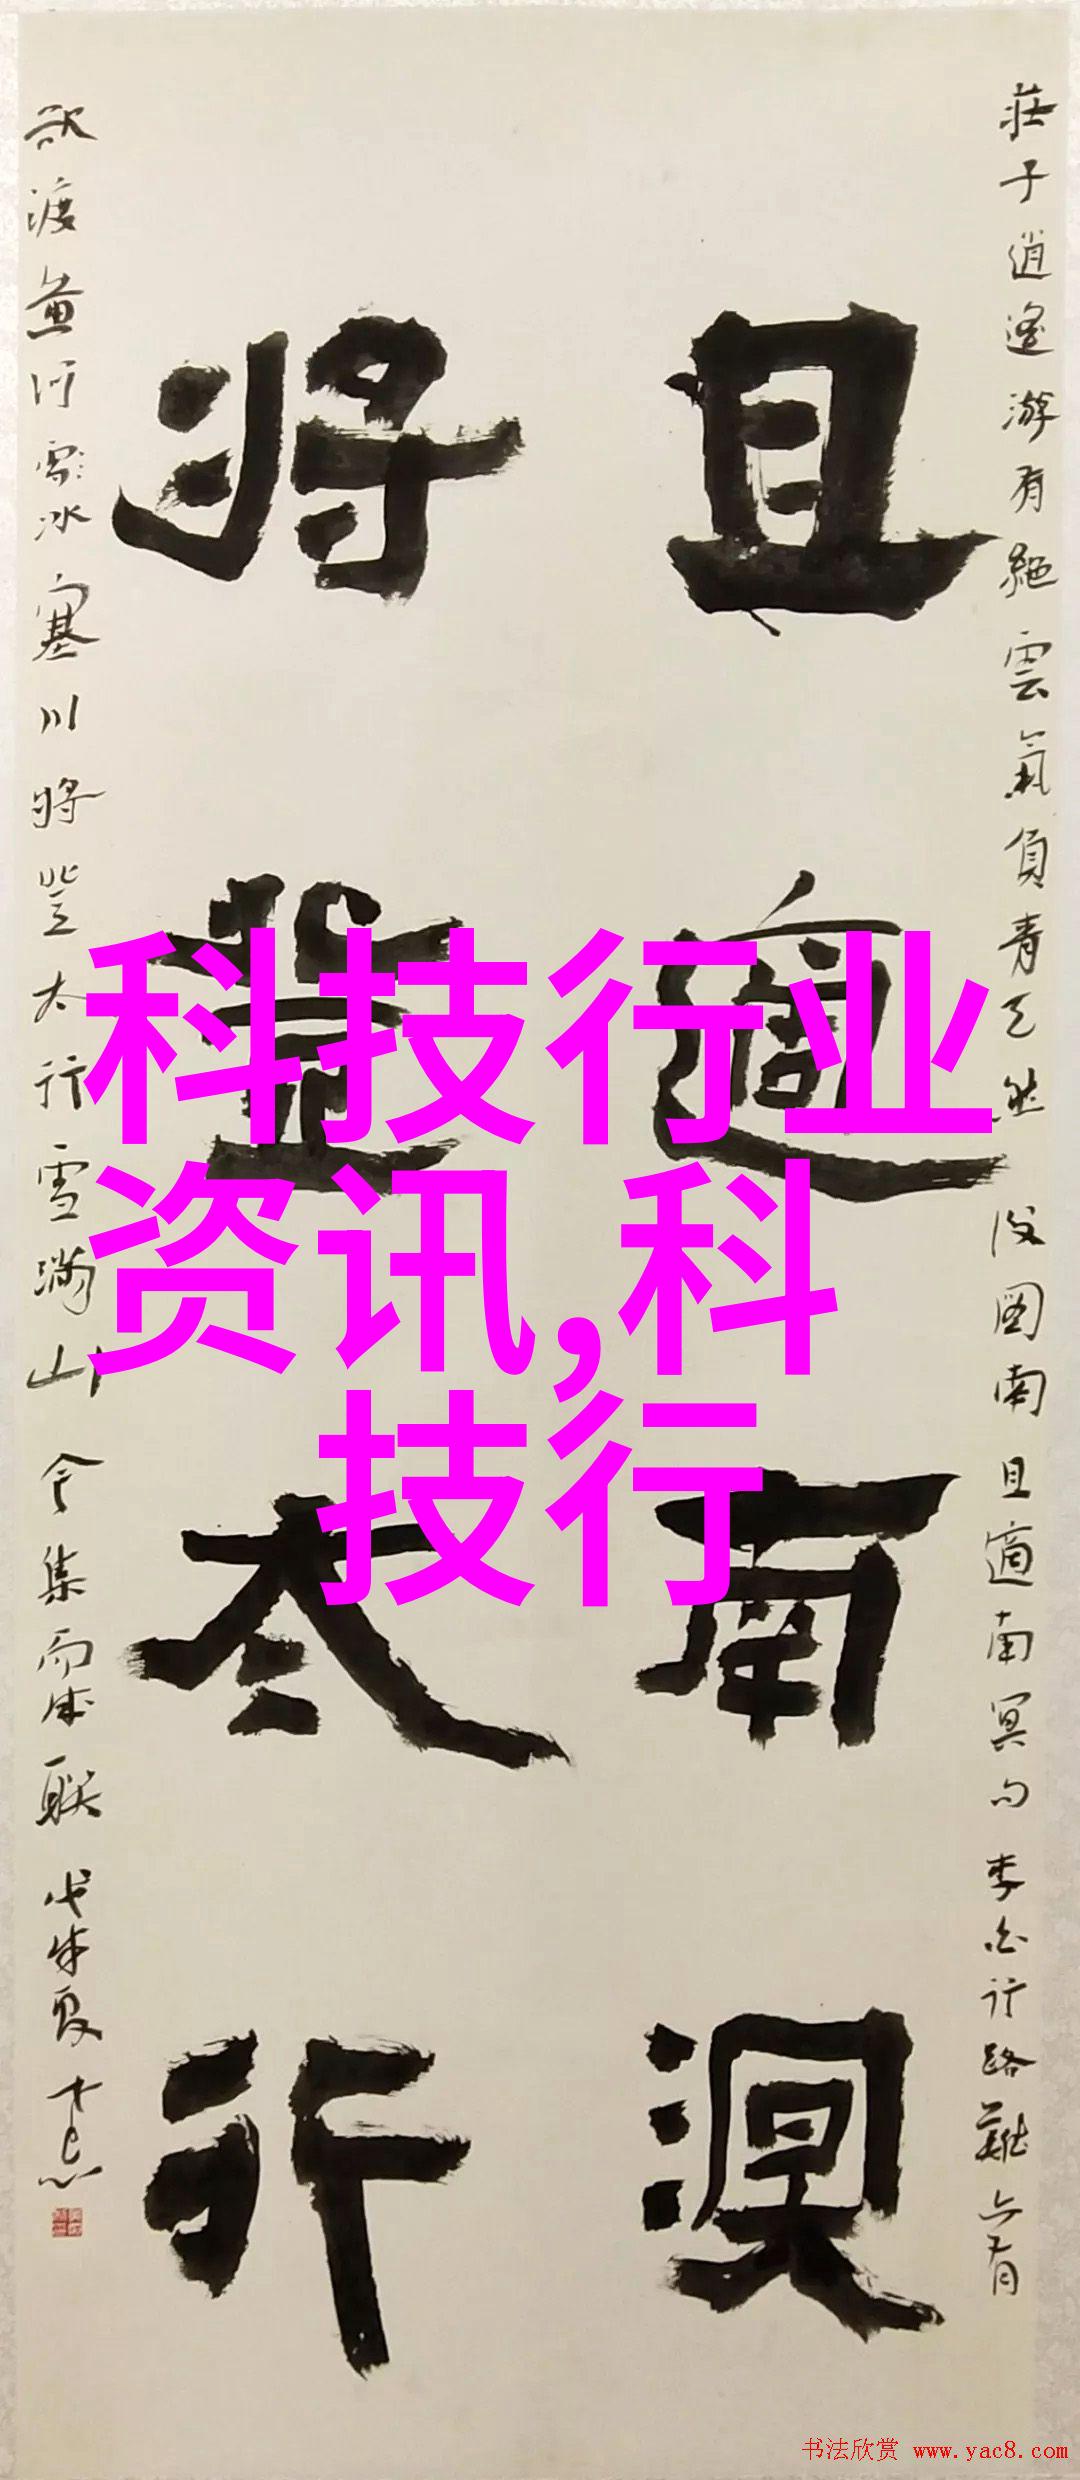 莊子逍遙游有絕雲氣負青天然後圖南且適南冥句李白行路難亦有
且適南溟
將登太行
欲渡黃河冰塞川將登太行雪滿山今集而成聯戊戌夏
科技行业
资讯,科
技行
书法欣赏 www.yac8.com